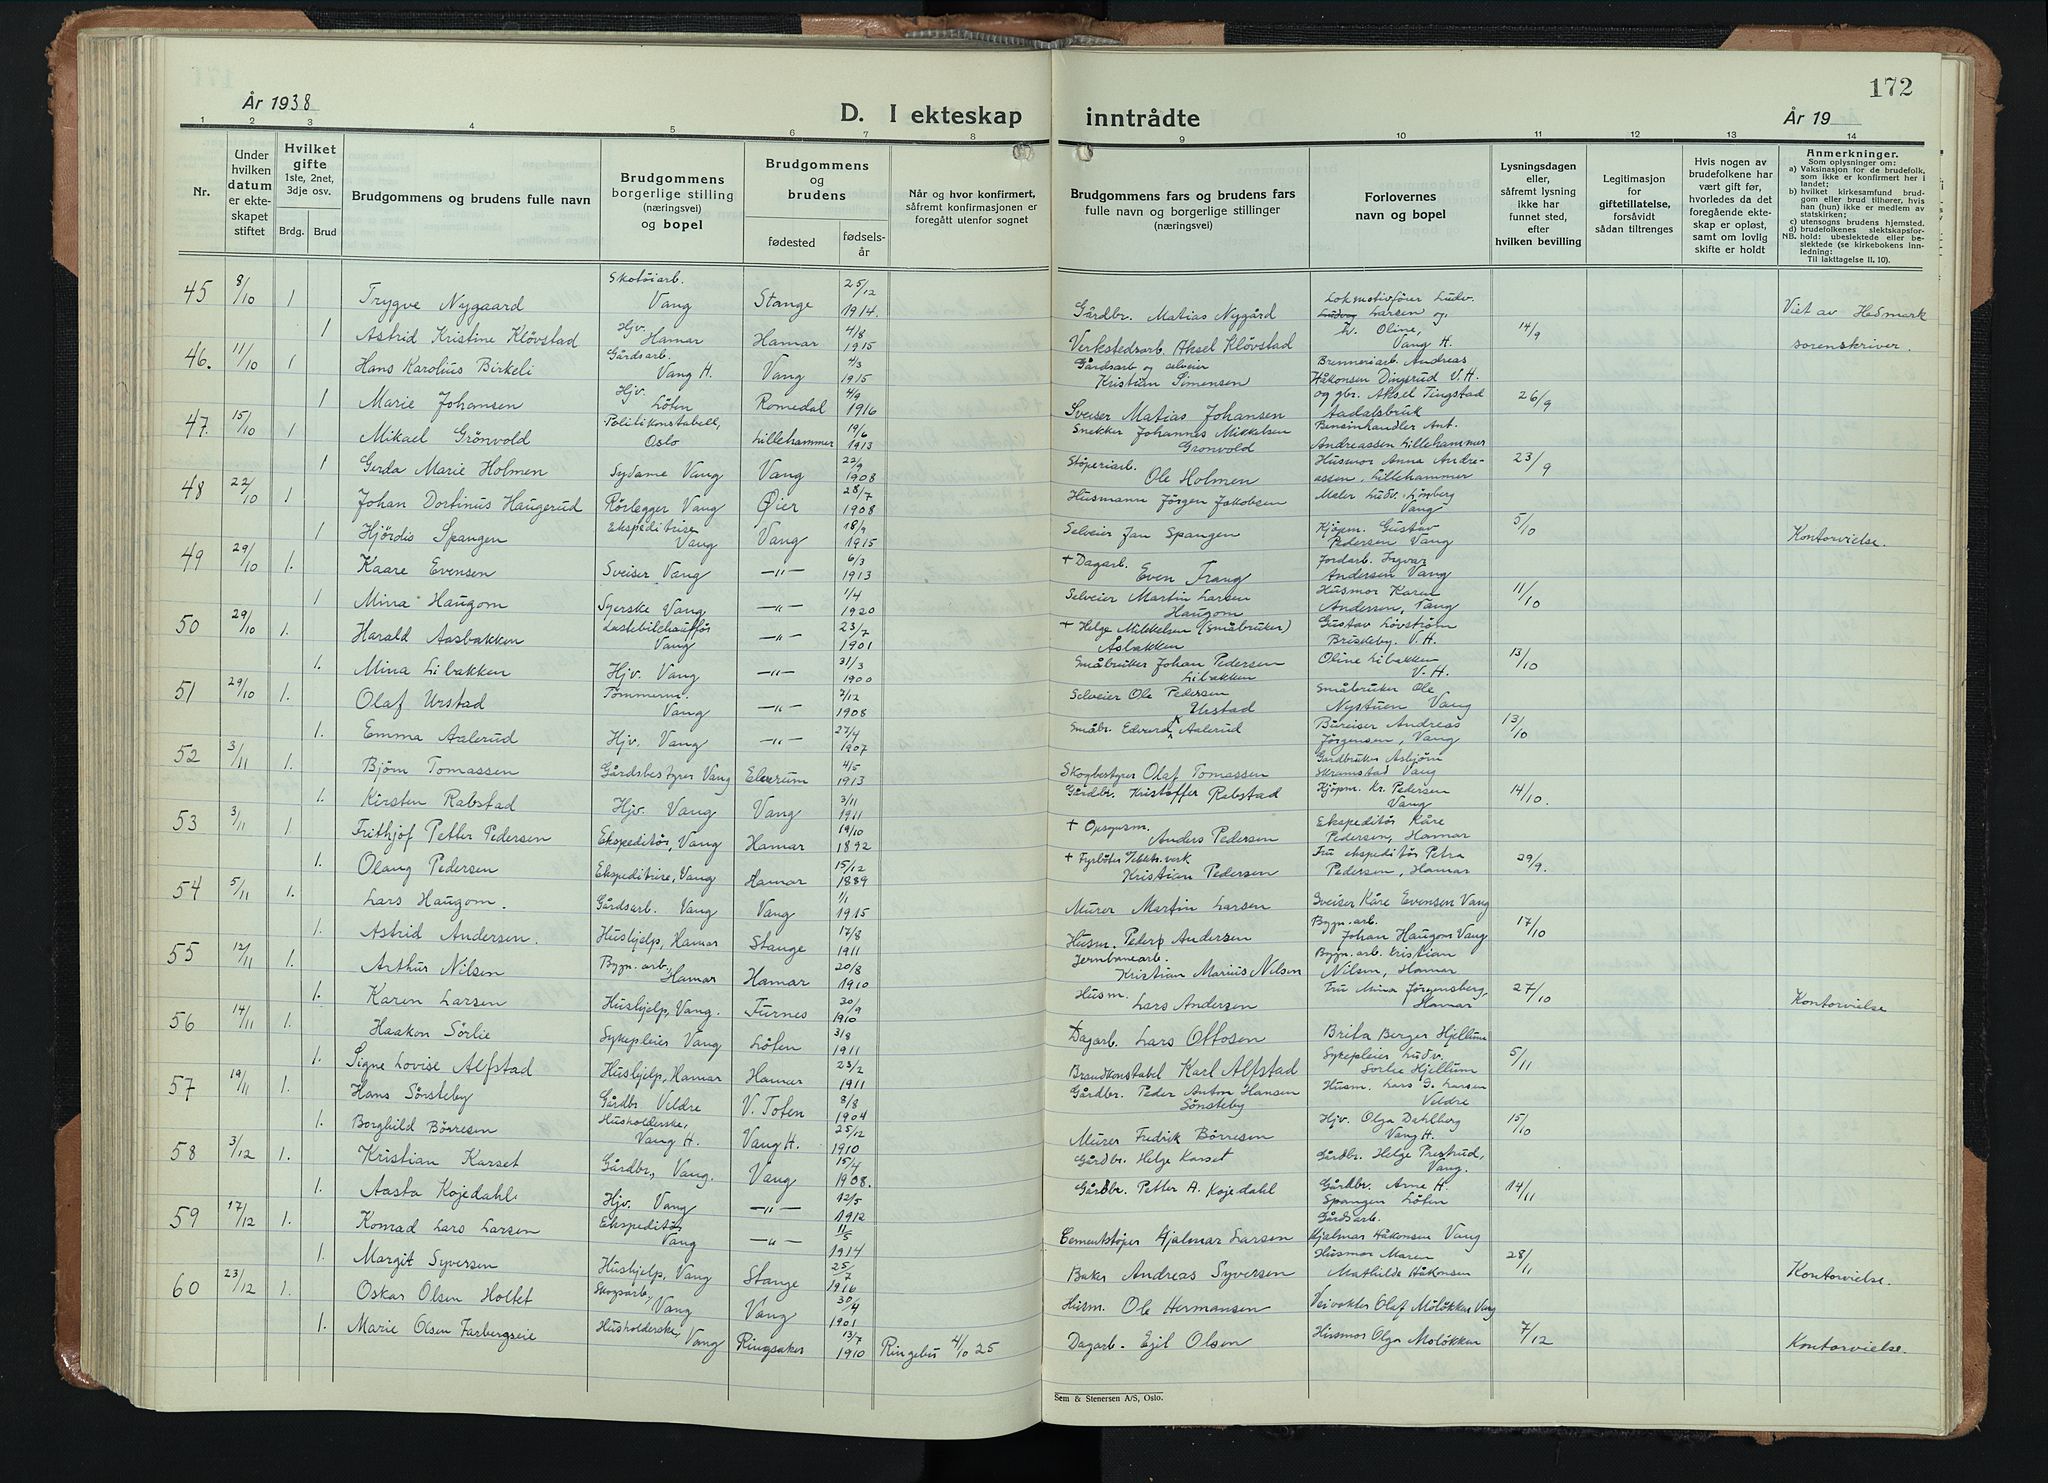 År 1938
D. I ekteskap inntrådte
År 19
172
1 2 3 4 5 6 7 8 9 10 11 12 13 14
Nr.
Under hvilken datum er ekteskapet stiftet
Hvilket gifte 1ste, 2net, 3dje osv.
Brdg. Brud
Brudgommens og brudens fulle navn
Brudgommens borgerlige stilling (næringsvei) og bopel
Brudgommens og brudens
fødested
fødselsår
Når og hvor konfirmert, såfremt konfirmasjonen er foregått utenfor sognet
Brudgommens fars og brudens fars fulle navn og borgerlige stillinger (næringsvei)
Forlovernes navn og bopel
Lysningsdagen eller, såfremt lysning ikke har funnet sted, efter hvilken bevilling
Legitimasjon for giftetillatelse, forsåvidt sådan tiltrenges
Hvis nogen av brudefolkene har vært gift før, hvorledes da det foregående ekteskap er opløst, samt om lovlig skifte er holdt
Anmerkninger.
Som oplysninger om:
a) Vaksinasjon for de brudefolk, som ikke er konfirmert her i landet;
b) hvilket kirkesamfund brudgom eller brud tilhører, hvis han (hun) ikke er medlem av statskirken;
c) utensogns brudens hjemsted.
d) brudefolkenes slektskapsforhold: ubeslektede eller beslektede (se kirkebokens innledning:
Til iakttagelse II, 10).
45 8/10 1 Trygve Nygaard Skotöiarb. Vang Stange 25/12 1914. Gårdbr. Matias Nygård Lokmotivförer Ludv. Larsen og Viet av Hedmark
1 Astrid Kristine Klövstad Hjv. Hamar Hamar 4/8 1915 Verkstedsarb. Aksel Klövstad Oline, Vang H. 14/9 sorenskriver.
46. 11/10 1 Hans Karolius Birkeli Gårdsarb. Vang H. Vang 4/3 1915 Gårdsarb og selveier Kristian Simensen Brenneriarb. Andreas Håkonsen Dingsrud V.H.
1 Marie Johansen Hjv. Löten Romedal 4/9 1916 Sveiser Matias Johansen og gbr. Aksel Tingstad Aadalsbruk 26/9
47. 15/10 1 Mikael Grönvold Politikonstabell, Oslo Lillehammer 19/6 1913 Snekker Johannes Mikkelsen Grönvold Bensinhandler Ant. Andreassen Lillehammer
1 Gerda Marie Holmen Sydame Vang Vang 22/9 1908 Stöperiarb. Ole Holmen Husmor Anna Andreassen, Lillehammer 23/9
48 22/10 1 Johan Dortinus Haugerud Rörlegger Vang Øier 28/7 1908 Husmann Jörgen Jakobsen Maler Ludv. Lönberg Vang
1 Hjördis Spangen Ekspeditrise Vang Vang 18/9 1915 Selveier Jan Spangen Kjöpm. Gustav Pedersen Vang 5/10 Kontorvielse.
49 29/10 1. Kaare Evensen Sveiser Vang —„— 6/3 1913 + Dagarb. Even Trang Jordarb. Ingvar Andersen Vang
1 Mina Haugom Syerske Vang —„— 1/4 1920 Selveier Martin Larsen Haugom Husmor Karen Andersen, Vang 11/10
50 29/10 1. Harald Aasbakken Lastebilchaufför Vang —„— 23/7 1901 + Helge Mikkelsen (Småbruker) Åsbakken Gustav Lövström Briskeby. V.H.
1. Mina Libakken Hjv. Vang —„— 31/3 1900 Småbruker Johan Pedersen Libakken Oline Libakken V.H. 13/10
51 29/10 1. Olaf Urstad Tömmerm. Vang —„— 7/12 1908 Selveier Ole Pedersen Urstad Småbruker Ole Nystuen Vang
1. Emma Aalerud Hjv. Vang —„— 27/4 1907 Småbr. Edvard K Aalerud Bureiser Andreas Jörgensen, Vang 13/10
52 3/11 1. Björn Tomassen Gårdsbestyrer Vang Elverum 4/5 1913 Skogbestyrer Olaf Tomassen Gårdbruker Asbjörn Skramstad Vang
1. Kirsten Rabstad Hjv. Vang Vang 3/11 1911 Gårdbr. Kristoffer Rabstad Kjöpm. Kr. Pedersen Vang 14/10.
53 3/11 1. Frithjof Petter Pedersen Ekspeditör, Vang Hamar 19/10 1892 + Anders Pedersen Ekspeditör Kåre Pedersen, Hamar
1. Olaug Pedersen Ekspeditrise, Vang Hamar 15/12 1889 + Kristian Pedersen Fru ekspeditör Petra Pedersen, Hamar 29/9.
54 5/11 1. Lars Haugom. Gårdsarb. Vang Vang 1/1 1915 Murer Martin Larsen Sveiser Kåre Evensen Vang
1. Astrid Andersen. Hushjelp, Hamar Stange 17/8 1911 Husm. Peder Andersen Bygn. arb. Johan Haugom Vang 17/10
55 12/11 1. Arthur Nilsen Bygn. arb. Hamar Hamar 20/8 1910 Jernbanearb. Kristian Marius Nilsen Bygn. arb. Kristian Nilsen, Hamar
1. Karen Larsen Hushjelp, Vang. Furnes 20/9 1910 Husm. Lars Andersen Fru Mina Jörgensberg, Hamar 27/10 Kontorvielse
56 14/11 1. Haakon Sörlie Sykepleier Vang Löten 31/8 1911 Dagarb. Lars Ottosen Brita Berger Hjellum
1. Signe Lovise Alfstad Hushjelp, Hamar Hamar 23/2 1911 Brandkonstabel Karl Alfstad Sykepleier Ludv. Sörlie Hjellum 5/11
57 19/11 1. Hans Sönsteby Gårdbr Veldre V. Toten 8/8 1904 Gårdbr. Peder Anton Hansen Sönsteby Husm. Lars G. Larsen Veldre
1. Borghild Börresen Husholderske, Vang H. Vang H. 25/12 1910 Murer Fredrik Börresen Hjv. Olga Dahlberg Vang H. 15/10
58 3/12 1. Kristian Karset Gårdbr., Vang. Vang 15/4 1908. Gårdbr. Helge Karset Gårdbr. Helge Prestrud, Vang.
1. Aasta Kojedahl Hjv. Vang —„— 12/5 1912 Gårdbr. Petter A. Kojedahl Gårdbr. Arne H. Spangen Löten 14/11
59 17/12 1. Konrad Lars Larsen Ekspeditör Vang —„— 11/5 1914 Cementstöper Hjalmar Larsen Gårdsarb. Hjalmar Håkonsen Vang
1. Margit Syversen Hushjelp, Vang Stange 25/7 1916 Baker Andreas Syversen Husmor Maren Mathilda Håkonsen 28/11 Kontorvielse.
60 23/12 1. Oskar Olsen Holtet Skogsarb., Vang Vang 30/4 1901 Husm. Ole Hermansen Veivokter Olaf Mölökken Vang
1. Marie Olsen Farbergseie Husholderske, Vang Ringsaker 13/7 1910 Ringebu 4/10 25 Dagarb. Egil Olsen Husmor Olga Molökken 7/12 Kontorvielse.
Sem & Stenersen A/S, Oslo.